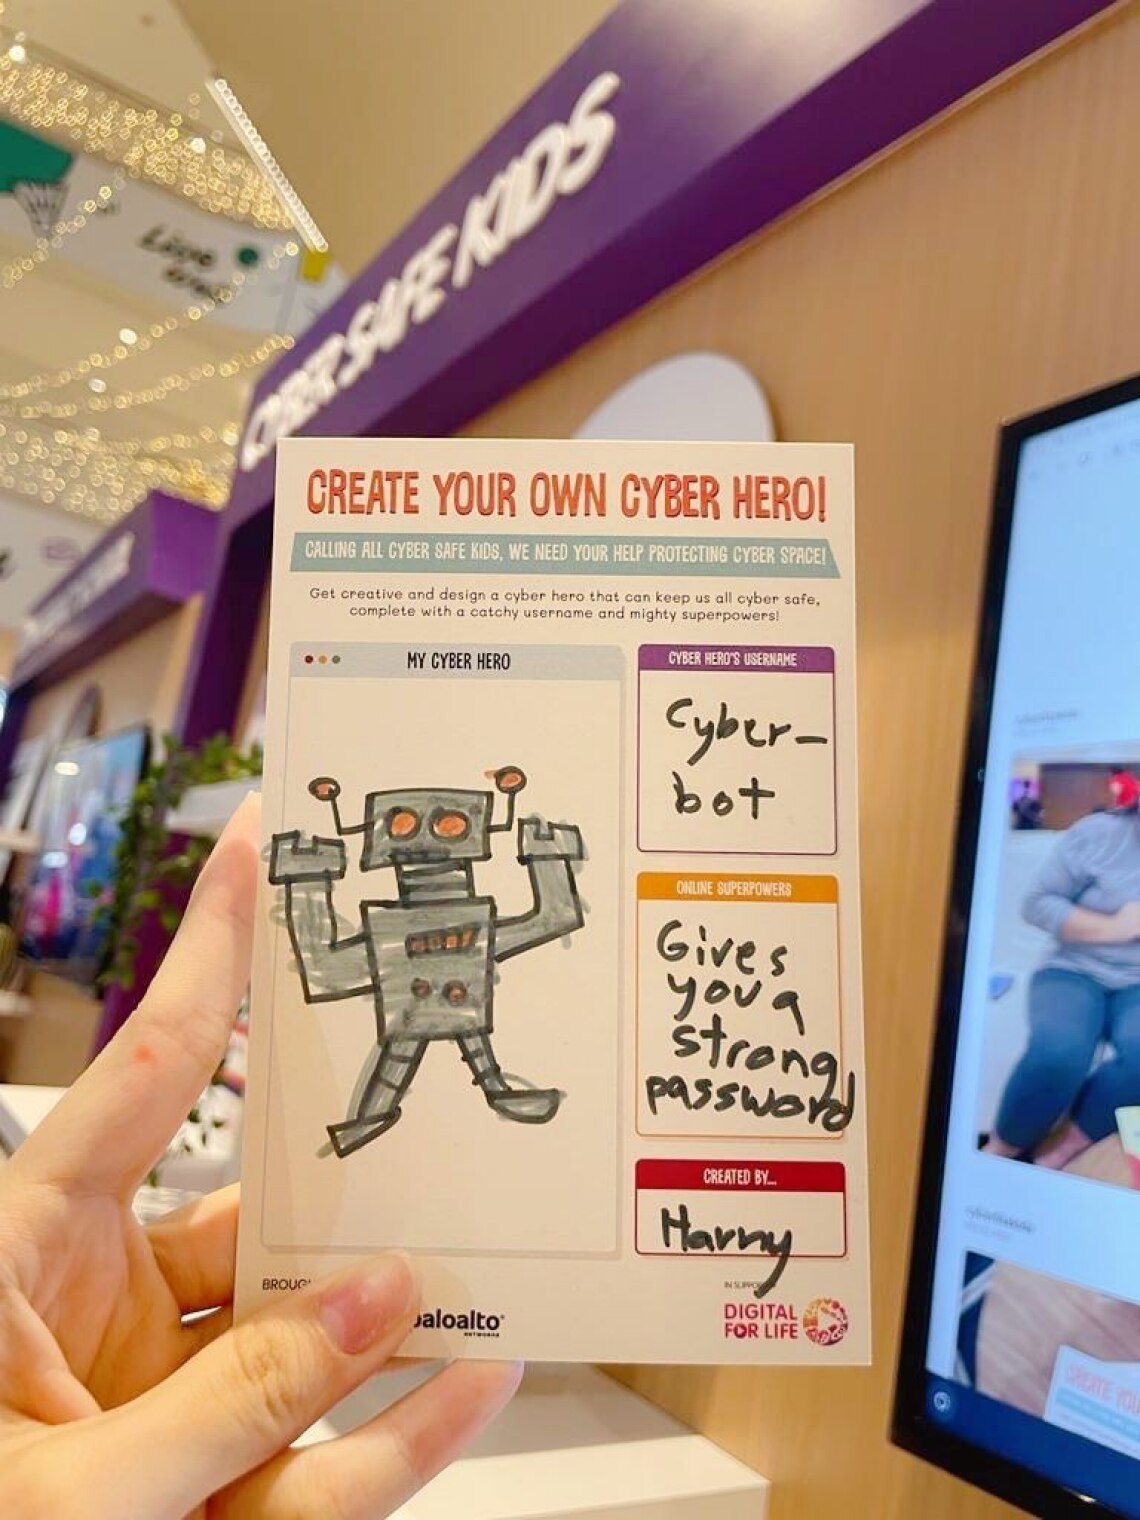 CYBER SAFE KIDS
Live
CREATE YOUR OWN CYBER HERO!
CALLING ALL CYBER SAFE KIDS, WE NEED YOUR HELP PROTECTING CYBER SPACE!
Get creative and design a cyber hero that can keep us all cyber safe,
complete with a catchy username and mighty superpowers!
MY CYBER HERO
CYBER HERO'S USERNAME
Cyber-
bot
ONLINE SUPERPOWERS
Gives
you a
strong
password
CREATED BY...
Harry
BROUG
IN SUPPO
paloalto
NETWORKS
DIGITAL
FOR LIFE
CREATE YOU